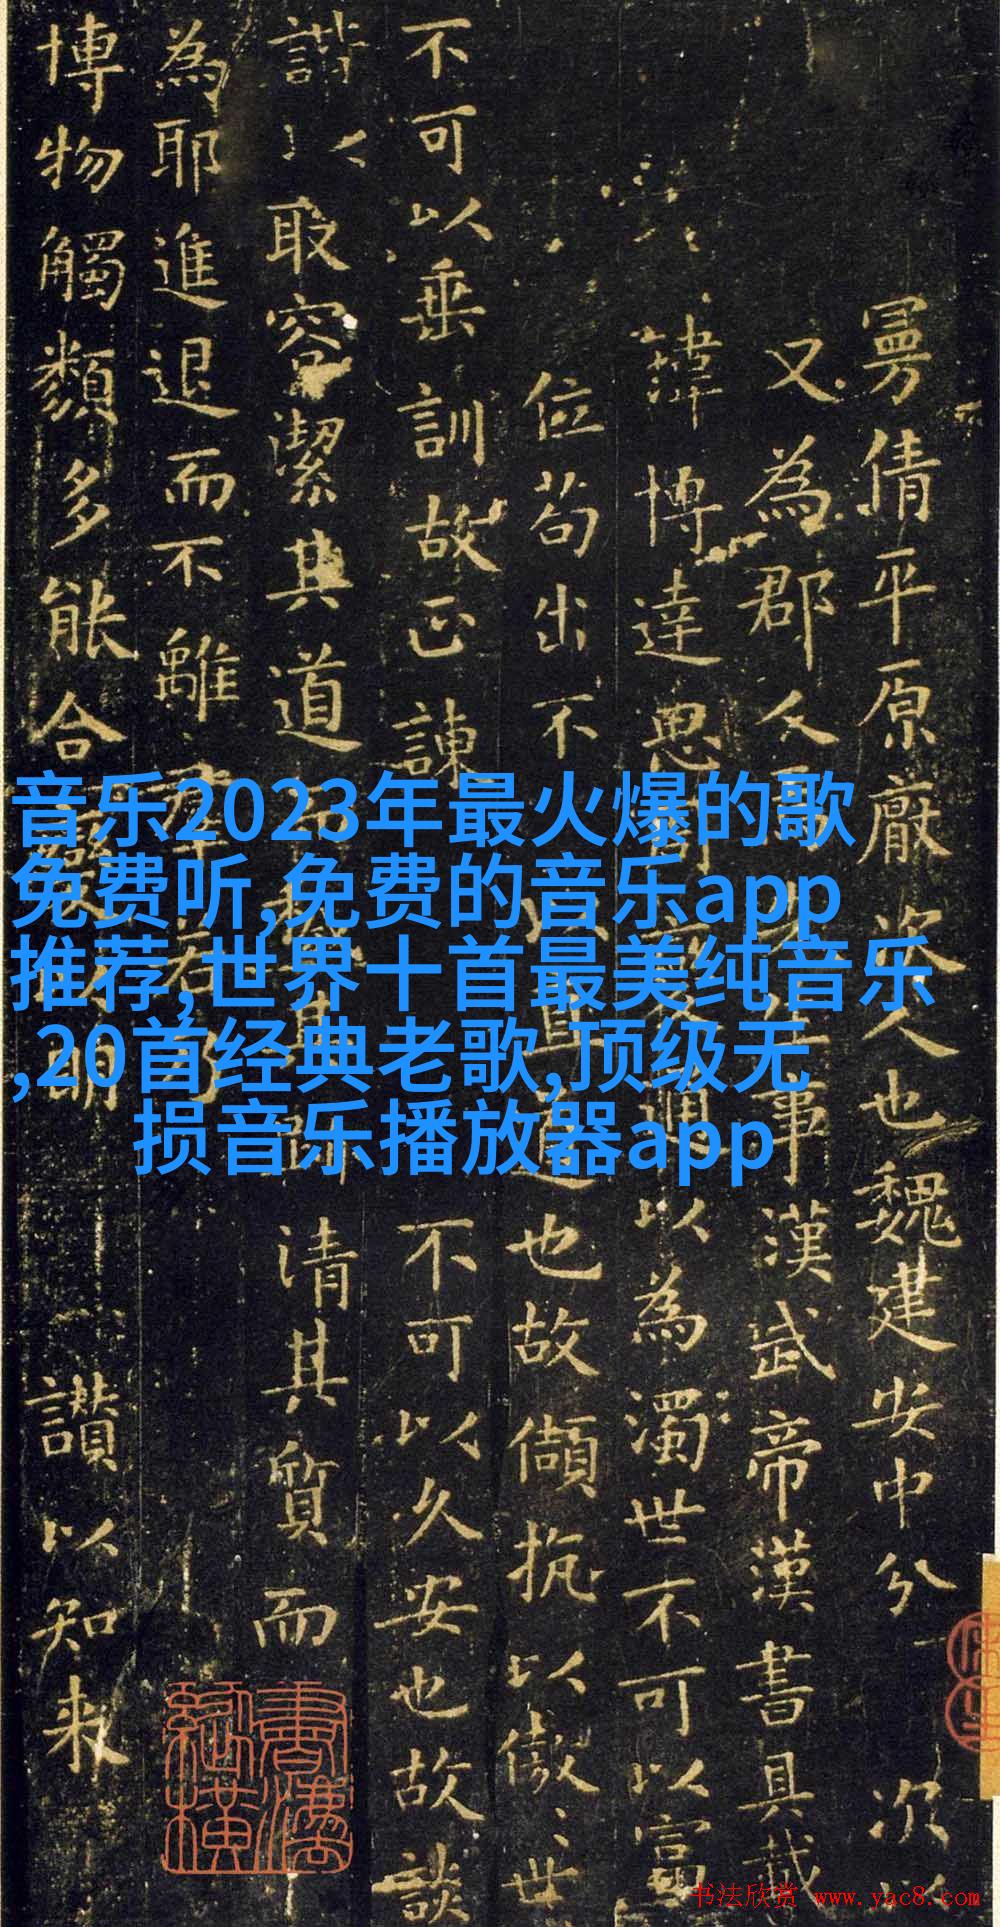 曼倩平原厭次人也魏建安中分 次
又為郡人事漢武帝漢書具載
瑋博達思周變通以為濁世不可以富
位苟出不可以直道也故頡抗以傲世
不可以垂訓故正諫不可以久安也故談
諧以取容潔其道而穢其跡清其質而
為耶進退而不離群若乃
博物觸類多能合變以明讃以知来
音乐2023年最火爆的歌
免费听,免费的音乐app
推荐,世界十首最美纯音乐
,20首经典老歌,顶级无
损音乐播放器app
书法欣赏 www.yac8.com